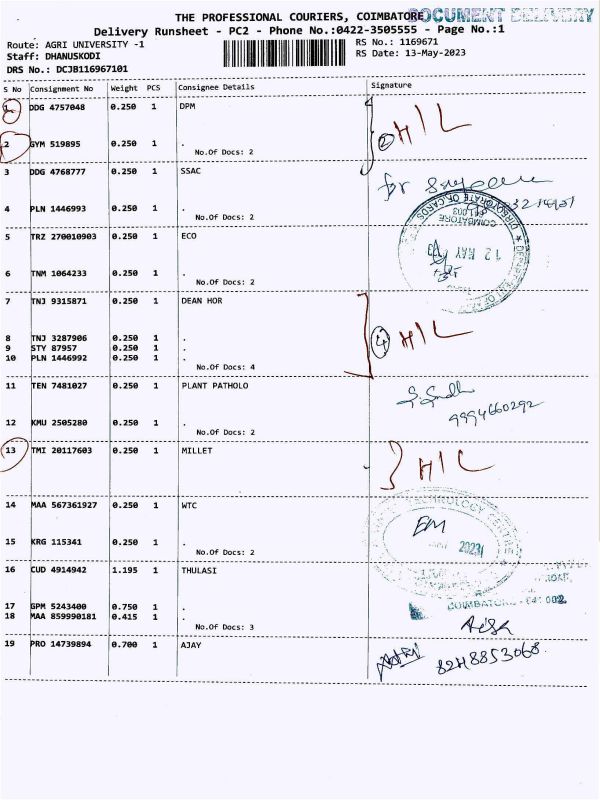 THE PROFESSIONAL COURIERS, COIMBATORE DOCUMENT DELIVERY
Delivery Runsheet - PC2 - Phone No.:0422-3505555 - Page No.:1
Route: AGRI UNIVERSITY -1 RS No.: 1169671
Staff: DHANUSKODI RS Date: 13-May-2023
DRS No.: DCJB116967101
S No Consignment No Weight PCS Consignee Details Signature
1 DDG 4757048 0.250 1 DPM
2 H/L
2 GYM 519895 0.250 1 .
No.Of Docs: 2
3 DDG 4768777 0.250 1 SSAC
for
4 PLN 1446993 0.250 1 .
No.Of Docs: 2
COIMBATORE
5 TRZ 270010903 0.250 1 ECO
12 MAY
6 TNM 1064233 0.250 1 .
No.Of Docs: 2
7 TNJ 9315871 0.250 1 DEAN HOR
4 H/L
8 TNJ 3287906 0.250 1 .
9 STY 87957 0.250 1 .
10 PLN 1446992 0.250 1 .
No.Of Docs: 4
11 TEN 7481027 0.250 1 PLANT PATHOLO
9994660292
12 KMU 2505280 0.250 1 .
No.Of Docs: 2
13 TMI 20117603 0.250 1 MILLET
H/L
14 MAA 567361927 0.250 1 WTC
TECHNOLOGY CENTRE
EM
2023
15 KRG 115341 0.250 1 .
No.Of Docs: 2
16 CUD 4914942 1.195 1 THULASI
17 GPM 5243400 0.750 1 .
18 MAA 859990181 0.415 1 .
No.Of Docs: 3
19 PRO 14739894 0.700 1 AJAY